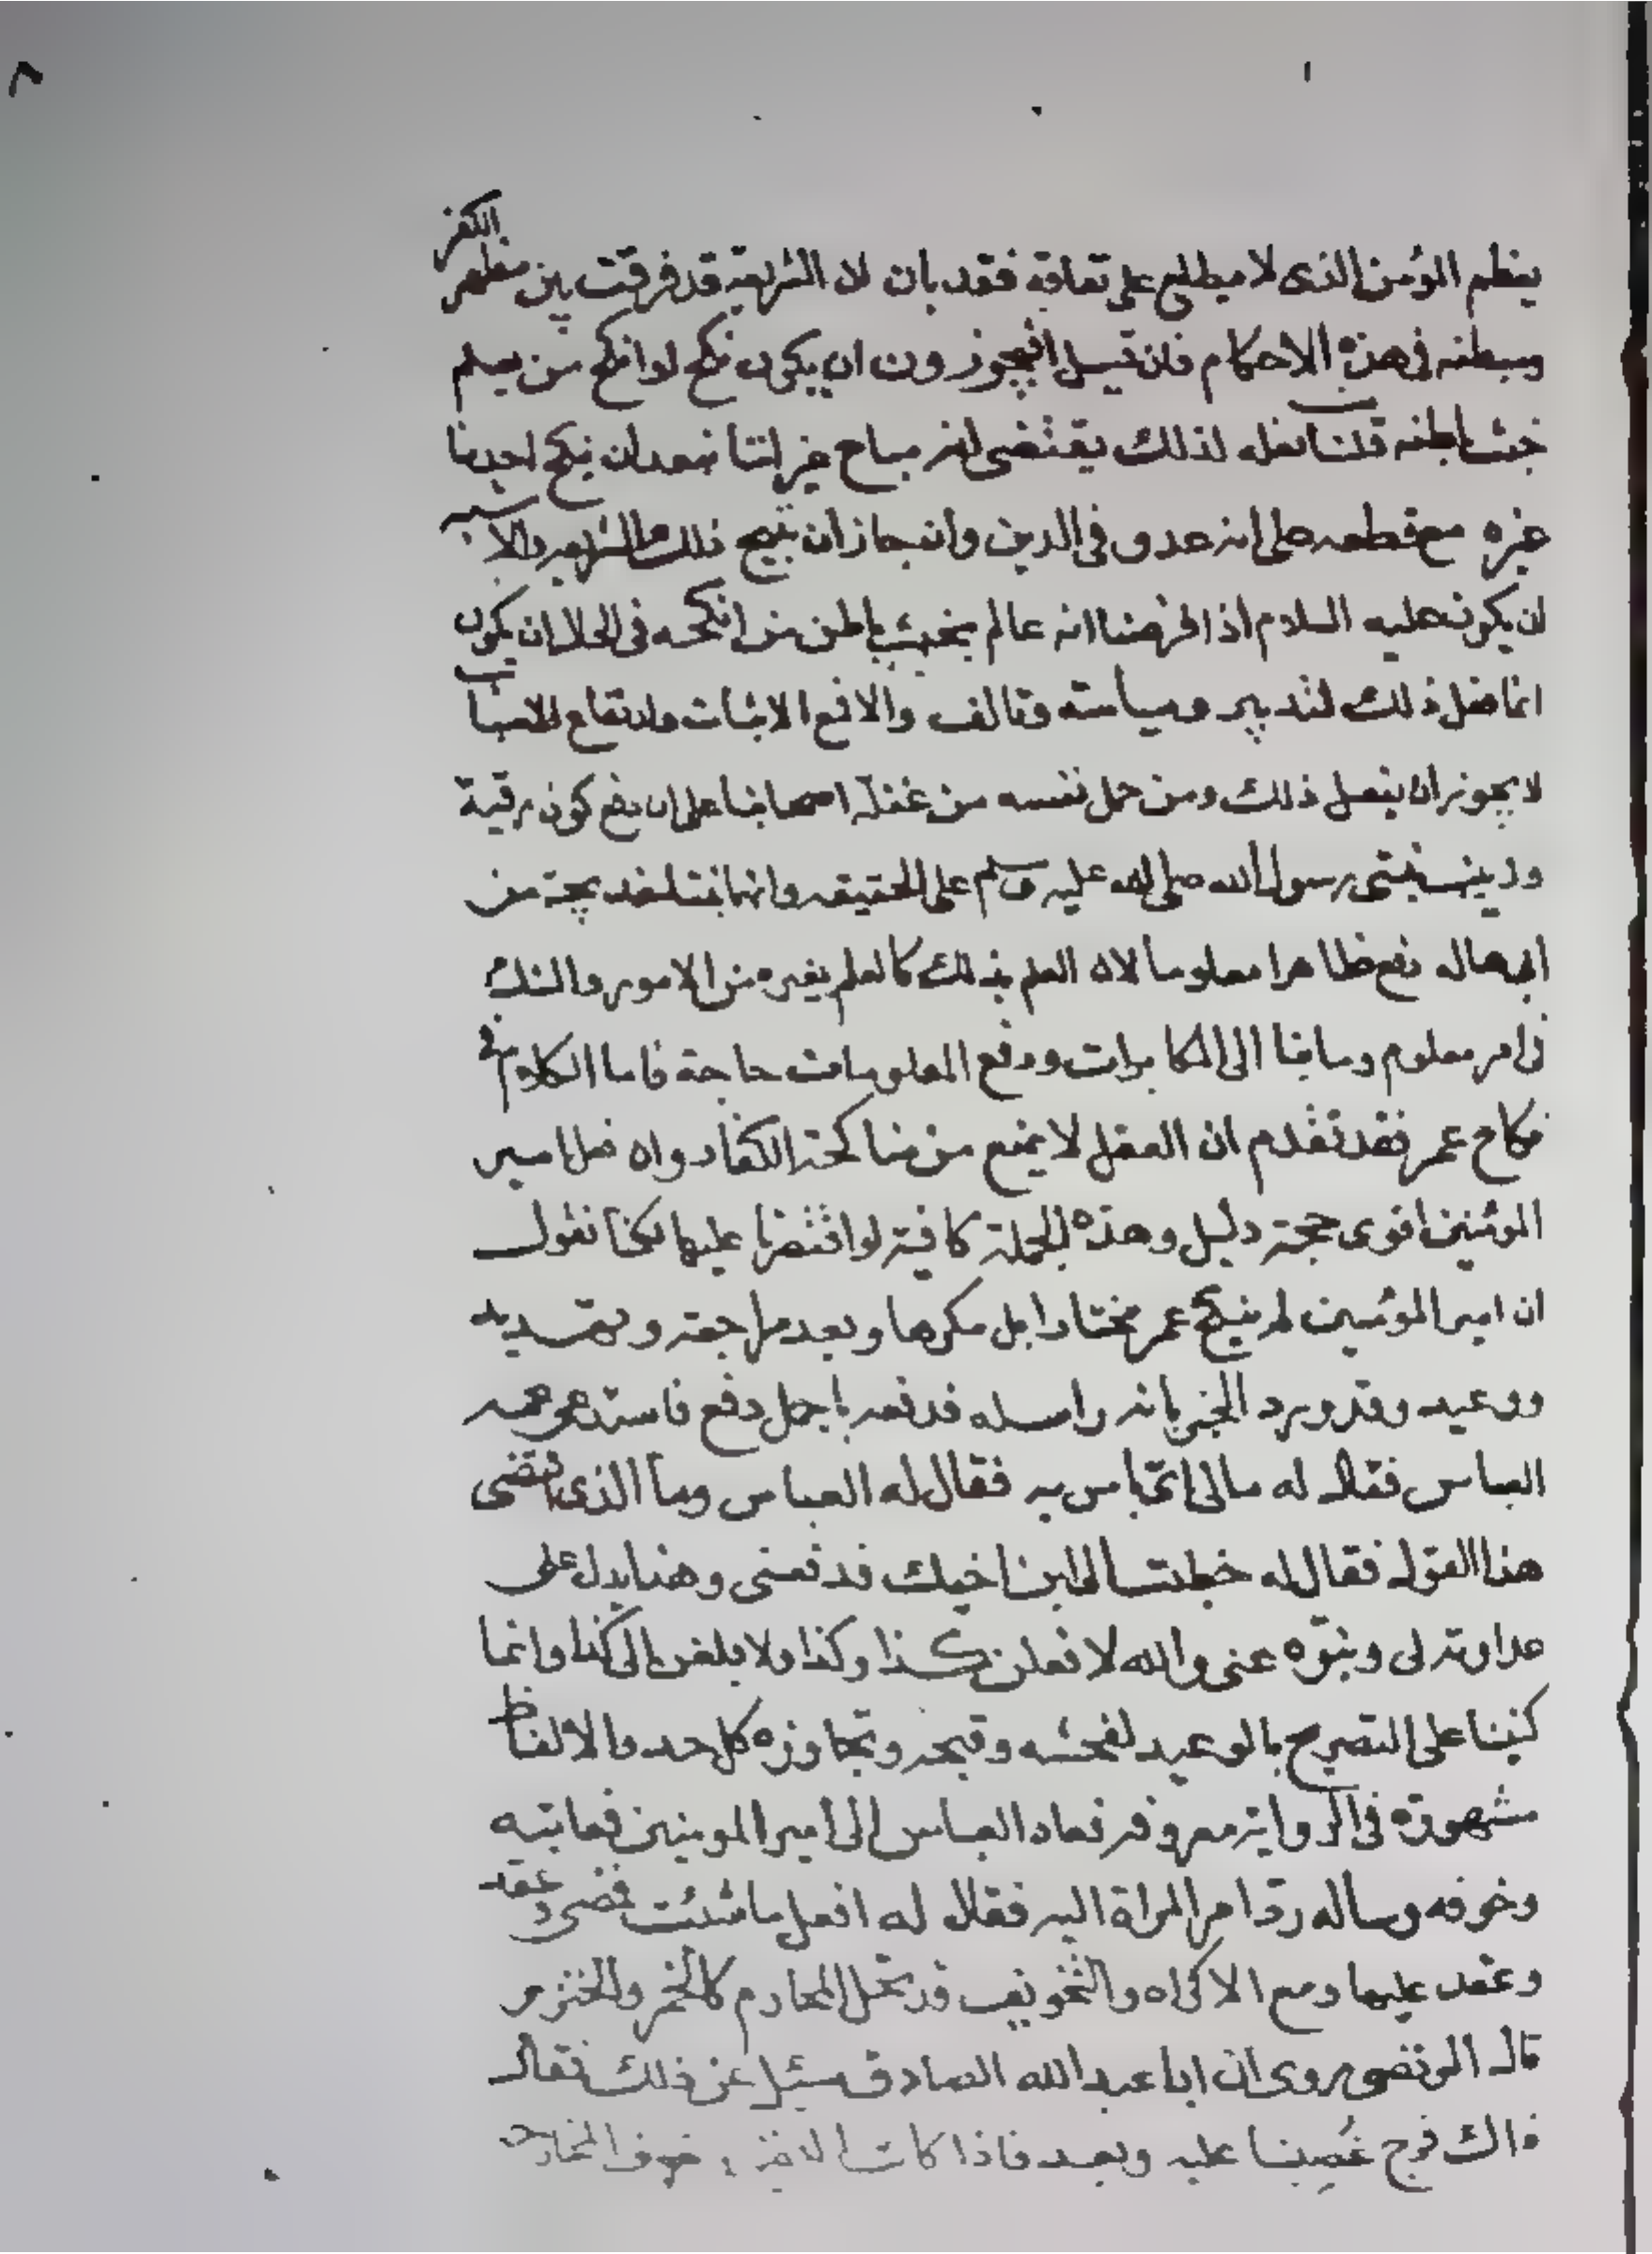 ٨
ينظم المؤمن الذى لا ميطلع على تفاقه فقد بان لان الشريعة قد فرقت بين مظهر الكفر
ومبطنه فى هذه الاحكام فان قيل افيجوزون ان يكون نكح لو انكح من يعلم
خبث باطنه قلنا فعله لذلك يقتضى انه مباح غير اننا نبعد ان ينكح احدنا
غيره مع قطعه على انه عدو فى الدين وانه جاز ان تبيح ذلك الشريعة والا
ان يكون عليه السلام اذا فرضنا انه عالم بخبث باطن من انكحه فى الحلال ان يكون
انما فعل ذلك لتدبير وسياسة وتالف والا فمع الاثبات وارتفاع الاسباب
لا يجوز ان يفعل ذلك ومن حمل نفسه من غفلة اصحابنا على ان دفع كون رقية
وزينب بنتى رسول الله صلى الله عليه وسلم على الحقيقه وانهما بنتا لخديجة من
ابى هاله دفع ظاهرا معلوما لان العلم بذلك كالعلم بغيره من الامور والشك
فى امر معلوم وما بنا الى المكابرات ودفع المعلومات حاجة فاما الكلام فى
نكاح عمر فقد تقدم ان العقل لا يمنع من مناكحة الكفار وان فعل امير
المومنين اقوى حجة دليل وهذه الجملة كافية لو اقتصرنا عليها لكنا نقول
ان امير المومنين لم ينكح عمر مختارا بل مكرها وبعد مراجعة وتهديد
ووعيد وقد ورد الخبر بانه راسله فدفعه باجمل دفع فاستدعى عمه
العباس فقال له مالى اتى باس به فقال له العباس وما الذى اقتضى
هذا القول فقال له خطبت الى ابن اخيك فدفعنى وهذا يدل على
عداوته لى ونبوّه عنى والله لافعلن كذا وكذا ولابلغن الى كذا وانما
كنينا على التصريح بالوعيد لفحشه وقبحه وتجاوزه كل حد والالفاظ
مشهورة فى الرواية معروفة فعاد العباس الى امير المومنين فعاتبه
وخوفه وساله ردّ امر المراة اليه فقال له افعل ما شئت فمضى وعقد
وعقد عليها ومع الاكراه والتخويف قد تحل المحارم كالخمر والخنزير
قال المرتضى وروى ان ابا عبد الله الصادق سئل عن ذلك فقال
ذاك فرج غُصِبنا عليه وبعد فاذا كانت خوف المخارج